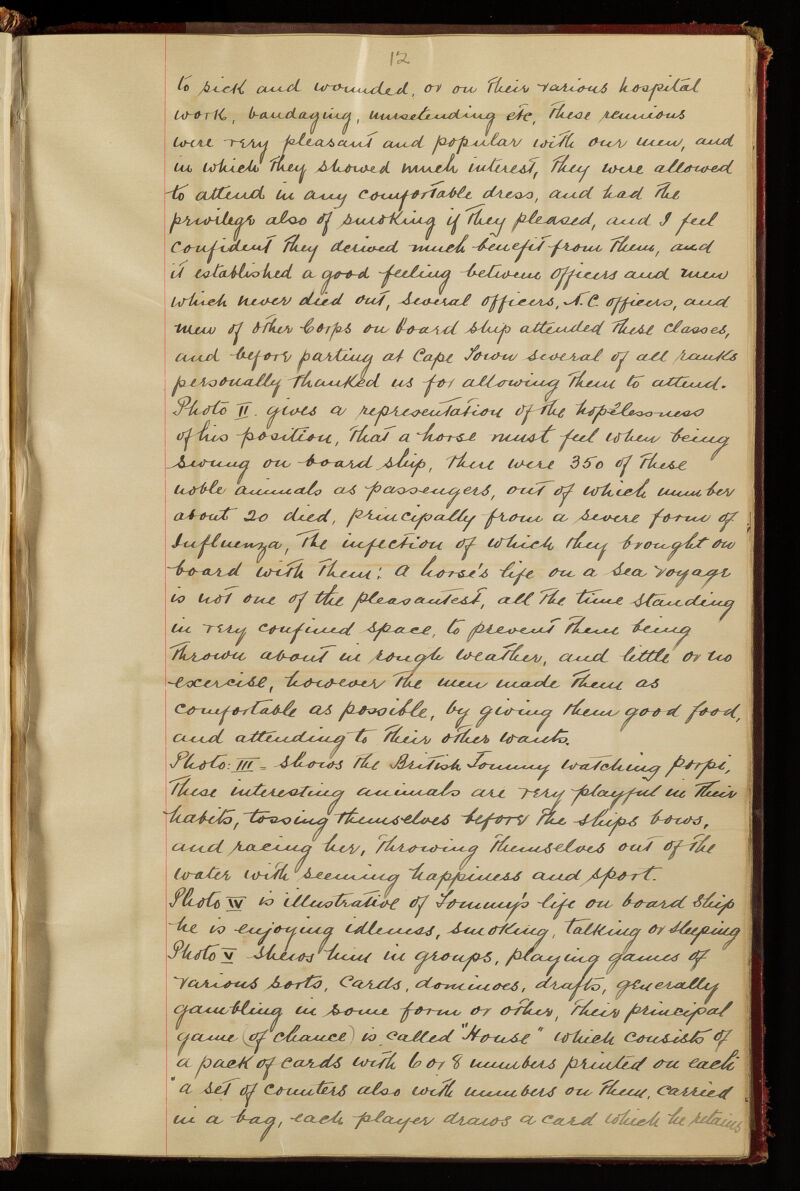 12
to sick and wounded, or on their various hospital
work, bandaging, nursetending etc, these reunions
were very pleasant and popular with our men, and
in which they showed much interest, they were allowed
to attend in any comfortable dress, and had the
privilege also of smoking if they pleased, and I feel
confident they derived much benefit from them, and
it established a good feeling between officers and men
which never died out, several officers, N.C. officers, and
men of other Corps on board ship attended these classes,
and before parting at Cape Town several of all ranks
personally thanked us for allowing them to attend.
Photo II. gives a representation of the hopelessness
of his position, that a horse must feel when being
swung on board ship, there were 350 of these
noble animals as passengers, out of which number
about 20 died, principally from a severe form of
Influenza, the infection of which they brought on
board with them: a horse's life on a sea voyage
is not one of the pleasantest, all the time standing
in very confined space, to prevent them being
thrown about in rough weather, and little or no
exercise, however the men made them as
comfortable as possible, by giving them good food,
and attending to their other wants.
Photo: III = shows the British Tommy watching porpi,
these interesting animals are very playful in their
habits, tossing themselves before the ships bows,
and racing her, throwing themselves out of the
water with seeming happiness and sport.
Photo IV is illustrative of Tommy's life on board ship
he is enjoying idleness, smoking, talking or sleeping
Photo V shews him in groups, playing games of
various sorts, cards, dominoes, drafts, generally
gambling in some form or other, their principal
game (of chance) is called "House" which consists of
a pack of cards with 6 or 8 numbers printed on each
"a set of counters also with numbers on them, carried
in a bag, each player draws a card which he retains